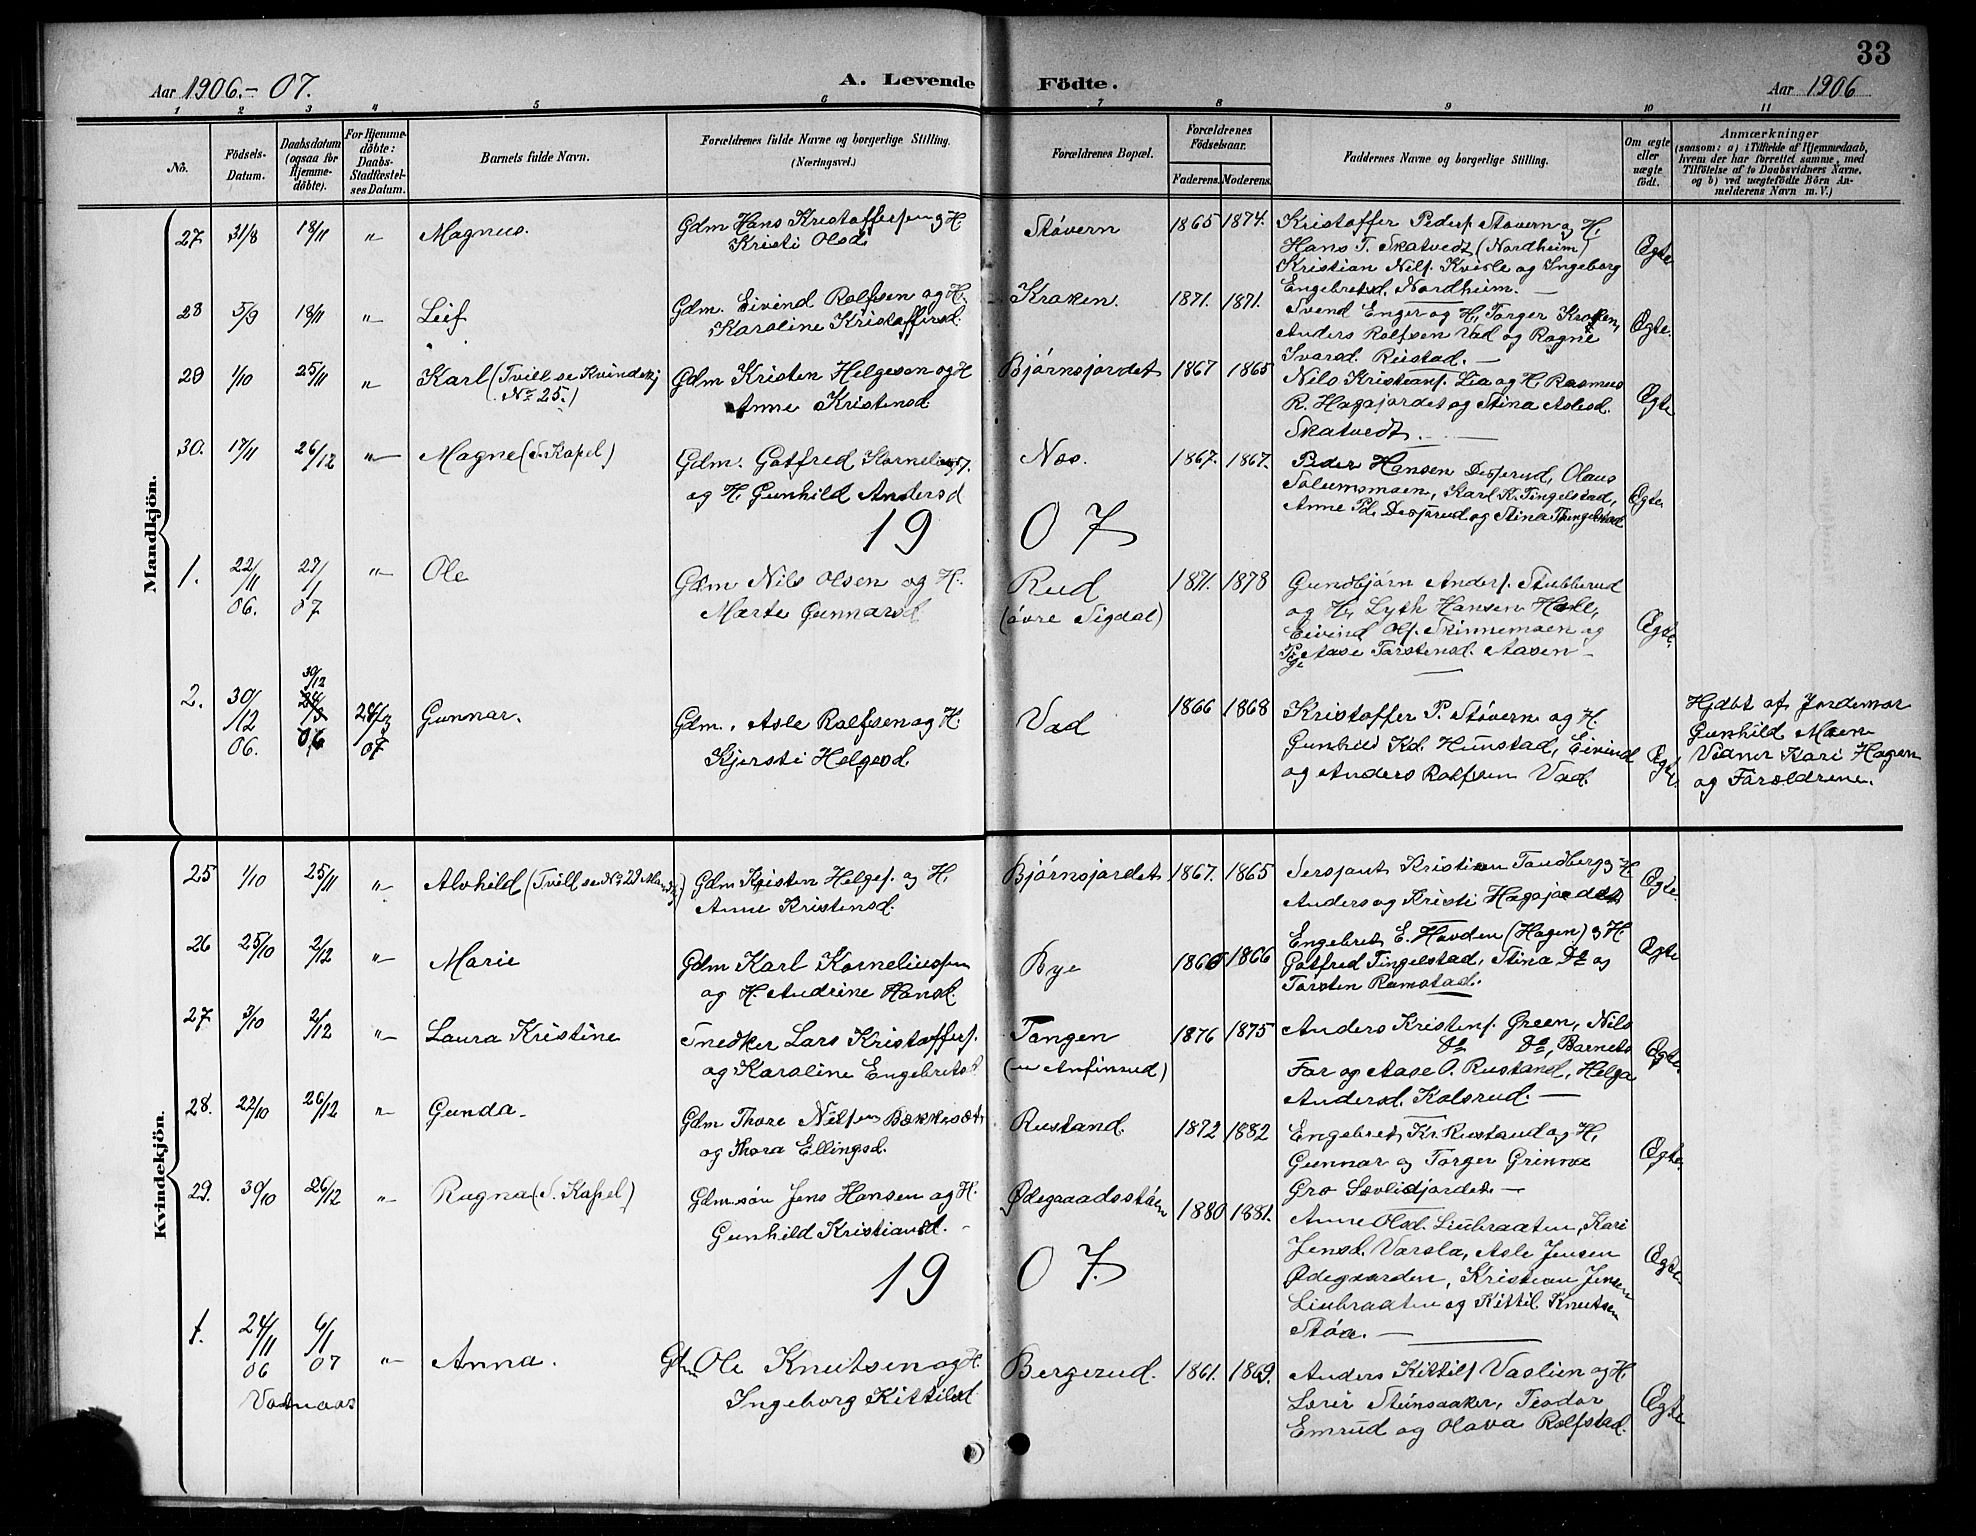 33
Aar 1906.-07. A. Levende Födte. Aar 1906
1 2 3 4 5 6 7 8 9 10 11
No. Födsels-Datum. Daabsdatum (ogsaa for Hjemmedöbte). For Hjemmedöbte: Daabs-Stadfæstelses Datum. Barnets fulde Navn. Forældrenes fulde Navne og borgerlige Stilling. (Næringsvei.) Forældrenes Bopæl. Forældrenes Födselsaar. Faderens. Moderens. Faddernes Navne og borgerlige Stilling. Om ægte eller uægte födt. Anmærkninger (saasom: a) i Tilfælde af Hjemmedaab, hvem der har forrettet samme, med Tilföielse af to Daabsvidners Navne, og b) ved uægtefödte Börn Anmelderens Navn m. V.)
Mandkjön.
27. 31/8 18/11 " Magnus. Gdm Hans Kristoffersen og H Støvern 1865 1874. Kristoffer Peders. Støvern og H,
Kristi Olsd. Hans T. Skatvedt (Nordheim) Ægte
Kristian Nils. Kvisle og Ingeborg
Engebretsd. Nordheim. —
28 5/9 18/11 " Leif Gdm. Eivind Rolfsen og H. Kraken. 1871. 1871. Svend Enger og H, Torger Kraken,
Karoline Kristoffersd. Anders Rolfsen Vad og Ragne Ægte.
Ivarsd. Rustad. —
29 1/10 25/11 " Karl (Tvill se Kvindekj Gdm Kristen Helgesen og H Bjørnsjordet 1867 1865 Nils Kristians. Lia og H, Rasmus
No 25.) Anne Kristensd. R. Hagajordet og Stina Aslesd. Ægte
Skatvedt. —
30. 17/11 26/12 " Magne (S. Kapel) Gdm. Gotfred Korneliuss. Nos. 1867. 1867. Peder Hansen Desserud, Olaus
og H. Gunhild Andersd Solumsmoen, Karl K. Tingelstad, Ægte
Anne Pd. Desserud og Stina Tingelstad
19 07
1. 22/11 06. 27/1 07 " Ole Gdm Nils Olsen og H. Rud 1871. 1878 Gundbjørn Anders. Stubberud
Marte Gunnarsd (øvre Sigdal) og H, Lyth Hansen Hole, Ægte.
Eivind Ols. Skinnemoen og
Pige Aase Torstensd. Aasen —
2. 30/12 06. 30/12 06 24/3 07 Gunnar. Gdm. Asle Rolfsen og H. Vad 1866 1868 Kristoffer P. Støvern og H. Hjdbt af Jordemor
Kjersti Helgesd. Gunhild Kd. Hunstad, Eivind Ægte. Gunhild Moen
og Anders Rolfsen Vad. Vidner Kari Hagen
og Forældrene.
Kvindekjön.
25 1/10 25/11 " Alvhild (Tvill se No 29 Mandkj) Gdm Kristen Helges. og H. Bjørnsjordet 1867. 1865 Sersjant Kristian Tandberg og H
Anne Kristensd. Anders og Kristi Hagajordet Ægte.
26 25/10 2/12 " Marie Gdm Karl Korneliussen Bye 1866 1866 Engebret E. Hovden (Hagen) og H
og H. Andrine Hansd. Gotfred Tingelstad, Stina Do og Ægte
Torsten Ramstad.
27. 3/10 2/12 " Laura Kristine Snedker Lars Kristoffers. Tangen 1876 1875 Anders Kristens. Green, Nils
og Karoline Engebretsd (u Anfinrud) Do Do, Barnets Ægte.
Far og Aase O. Rustand, Helga
Andersd. Kolsrud. —
28. 22/10 26/12 " Gunda. Gdm Thore Nilsen Bækkesæt Rustand. 1872 1882 Engebret Kr. Rustand og H,
og Thora Ellingsd. Gunnar og Torger Grinna Ægte.
Gro Sævlidjordet —
29. 30/10 26/12 " Ragna (S. Kapel) Gdm.søn Jens Hansen og H. Ødegaardsstøen 1880 1881. Anne Olsd. Liubraaten, Kari
Gunhild Kristiansd. Jensd. Varsla, Asle Jensen Ægte.
19 07. Ødegaarden, Kristian Jensen
Liubraaten og Kittil Knutsen
Støa. —
1. 24/11 06 6/1 07 " Anna. Gdm Ole Knutsen og H. Bergerud. 1861. 1869. Anders Kittils. Vaslien og H
Ingeborg Kittilsd Steinsaaker, Teodor Ægte
Emrud og Olava Rolfstad.